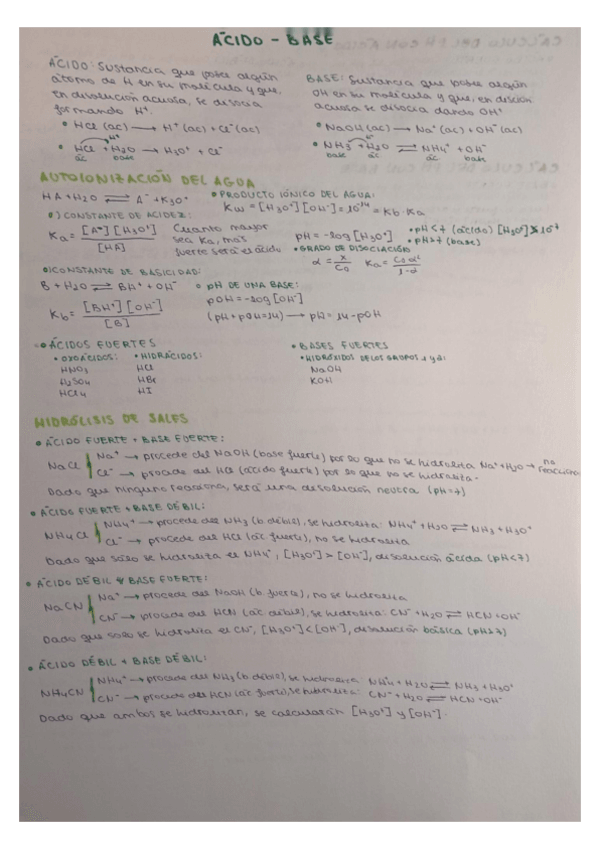 ÁCIDO - BASE
ÁCIDO: Sustancia que posee algún
átomo de H en su molécula y que,
en disolución acuosa, se disocia
formando H⁺.
• HCl (ac) → H⁺ (ac) + Cl⁻ (ac)
H⁺
• HCl + H₂O → H₃O⁺ + Cl⁻
ác base
BASE: Sustancia que posee algún
OH en su molécula y que, en
acuosa se disocia dando OH⁻
• NaOH (ac) → Na⁺ (ac) + OH⁻ (ac)
H⁺
• NH₃ + H₂O ⇌ NH₄⁺ + OH⁻
base ác ác base
AUTOIONIZACIÓN DEL AGUA
HA + H₂O ⇌ A⁻ + H₃O⁺
• PRODUCTO IÓNICO DEL AGUA:
Kw = [H₃O⁺][OH⁻] = 10⁻¹⁴ = Kb · Ka
CONSTANTE DE ACIDEZ:
Ka = [A⁻][H₃O⁺] / [HA]
Cuanto mayor
sea Ka, más
fuerte será el ácido
pH = -log [H₃O⁺]
• pH < 7 (ácido) [H₃O⁺] 10⁻⁷
• pH > 7 (base)
• GRADO DE DISOCIACIÓN
α = x / C₀ Ka = C₀α² / 1-α
CONSTANTE DE BASICIDAD:
B + H₂O ⇌ BH⁺ + OH⁻
Kb = [BH⁺][OH⁻] / [B]
• pH DE UNA BASE:
pOH = -log [OH⁻]
(pH + pOH = 14) → pH = 14 - pOH
• ÁCIDOS FUERTES
• OXOÁCIDOS: • HIDRÁCIDOS:
HNO₃ HCl
H₂SO₄ HBr
HClO₄ HI
• BASES FUERTES
• HIDRÓXIDOS DE LOS GRUPOS 1 y 2:
NaOH
KOH
HIDRÓLISIS DE SALES
• ÁCIDO FUERTE + BASE FUERTE:
NaCl
Na⁺ → procede del NaOH (base fuerte) por lo que no se hidroliza Na⁺ + H₂O → no reacciona
Cl⁻ → procede del HCl (ácido fuerte) por lo que no se hidroliza.
Dado que ninguno reacciona, será una disolución neutra (pH=7)
• ÁCIDO FUERTE + BASE DÉBIL:
NH₄Cl
NH₄⁺ → procede del NH₃ (b. débil), se hidroliza: NH₄⁺ + H₂O ⇌ NH₃ + H₃O⁺
Cl⁻ → procede del HCl (ác fuerte), no se hidroliza
Dado que sólo se hidroliza el NH₄⁺, [H₃O⁺] > [OH⁻], disolución ácida (pH<7)
• ÁCIDO DÉBIL + BASE FUERTE:
NaCN
Na⁺ → procede del NaOH (b. fuerte), no se hidroliza
CN⁻ → procede del HCN (ác débil), se hidroliza: CN⁻ + H₂O ⇌ HCN + OH⁻
Dado que solo se hidroliza el CN⁻, [H₃O⁺] < [OH⁻], disolución básica (pH>7)
• ÁCIDO DÉBIL + BASE DÉBIL:
NH₄CN
NH₄⁺ → procede del NH₃ (b. débil), se hidroliza: NH₄⁺ + H₂O ⇌ NH₃ + H₃O⁺
CN⁻ → procede del HCN (ác fuerte), se hidroliza: CN⁻ + H₂O ⇌ HCN + OH⁻
Dado que ambos se hidrolizan, se calcularán [H₃O⁺] y [OH⁻].